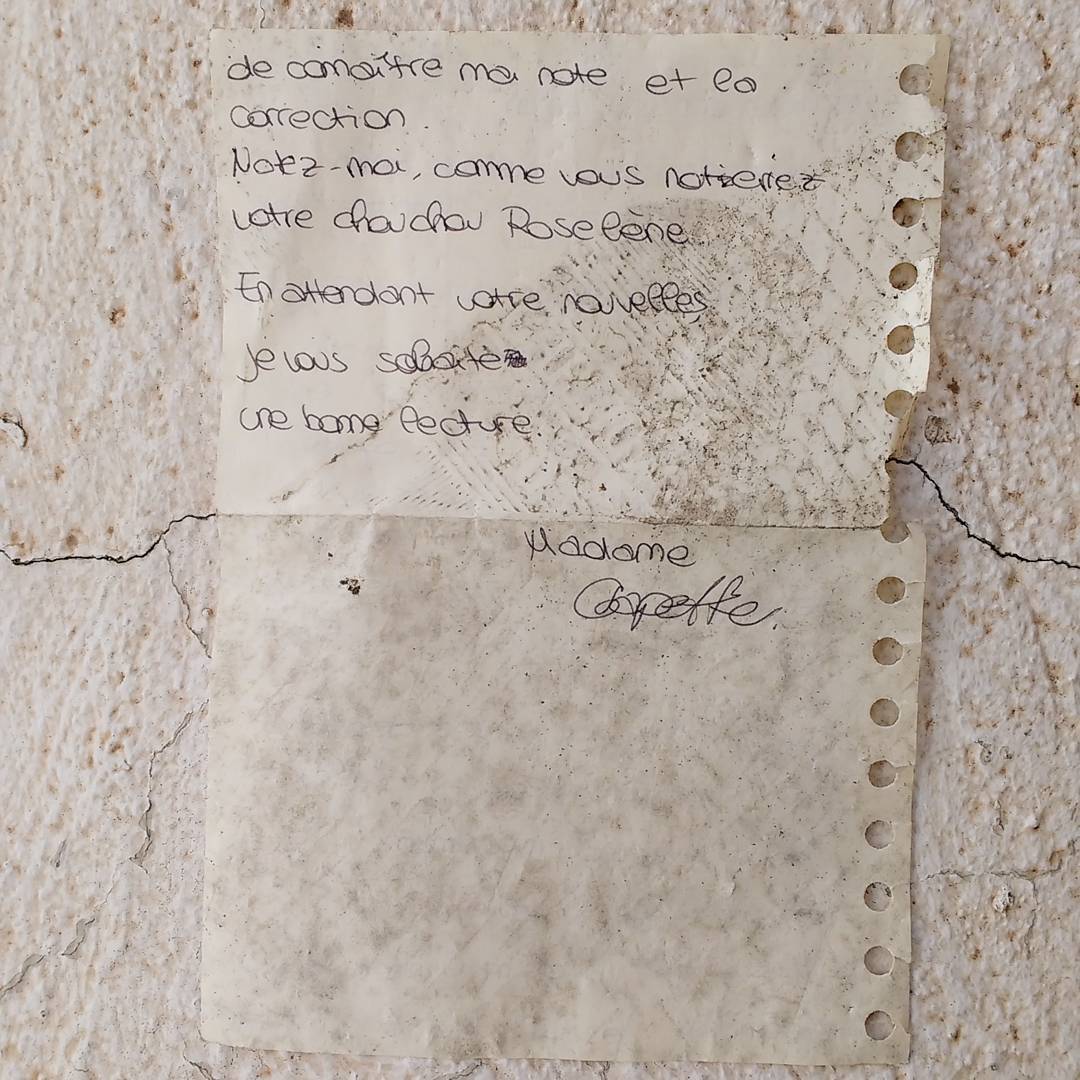 de connaître ma note et la
correction.
Notez-moi, comme vous noteriez
votre chouchou Roselène.
En attendant votre nouvelles
je vous souhaite
une bonne lecture.
Madame